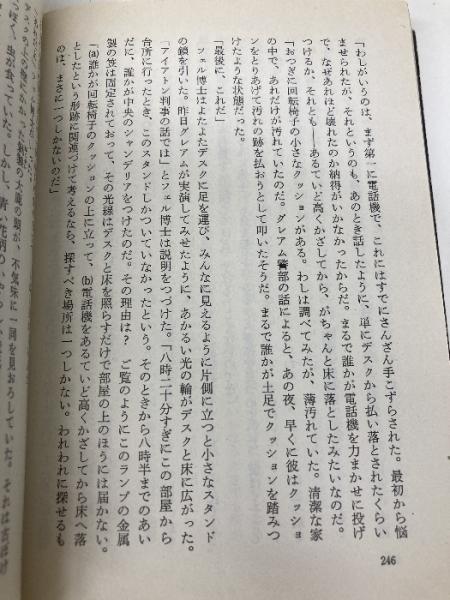 「わしがいうのは、まず第一に電話機で、これにはすでにさんざん手こずらされた。最初から悩
ませられたが、それというのも、あのとき話したように、単にデスクから払い落とされたくらい
で、なぜあれほど壊れたのか納得がいかなかったからだ。まるで誰かが電話機を力まかせに投げ
つけるか、それとも――あるていど高くかざしてから、がちゃんと床に落としたみたいなのだ。
「おつぎに回転椅子の小さなクッションがある。わしは調べてみたが、薄汚れていた。清潔な家
の中で、あれだけが汚れていたのだ。グレアム警部の話によると、あの夜、早くに彼はクッショ
ンをとりあげて汚れの跡を払おうとして叩いたそうだ。まるで誰かが土足でクッションを踏みつ
けたような状態だった。
「最後に、これだ」
フェル博士はよたよたデスクに足を運び、みんなに見えるように片側に立つと小さなスタンド
の鎖を引いた。昨日グレアムが実演してみせたように、あかるい光の輪がデスクと床に広がった。
「アイアトン判事の話では」とフェル博士は説明をつづけた。「八時二十分すぎにこの部屋から
台所に行ったとき、このスタンドしかついていなかったという。そのときから八時半までのあい
だに、誰かが中央のシャンデリアをつけたのだ。その理由は？　ご覧のようにこのランプの金属
製の笠は固定されておって、その光線はデスクと床を照らすだけで部屋の上のほうには届かない。
「(a)誰かが回転椅子のクッションの上に立って、(b)電話機をあるていど高くかざしてから床へ落
としたという形跡に関連づけて考えるなら、探すべき場所は一つしかない。われわれに探せるも
のは、まさに一つしかないのだ」
246